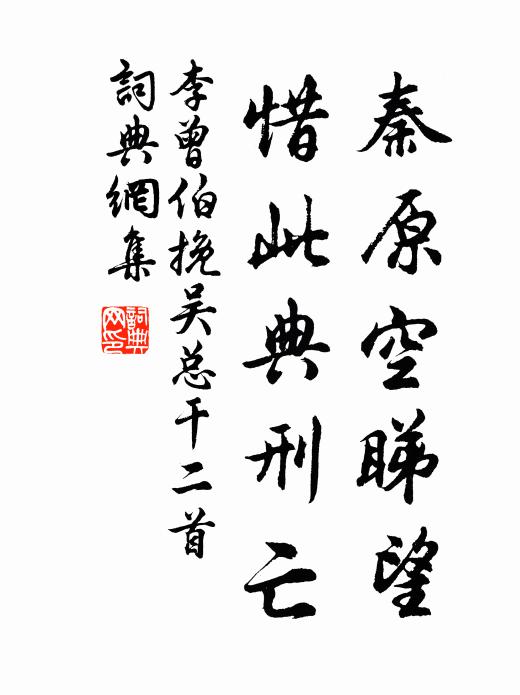 秦原空睇望
惜此典刑亡
李曾伯挽吴总干二首
詞典網集
詞典网印